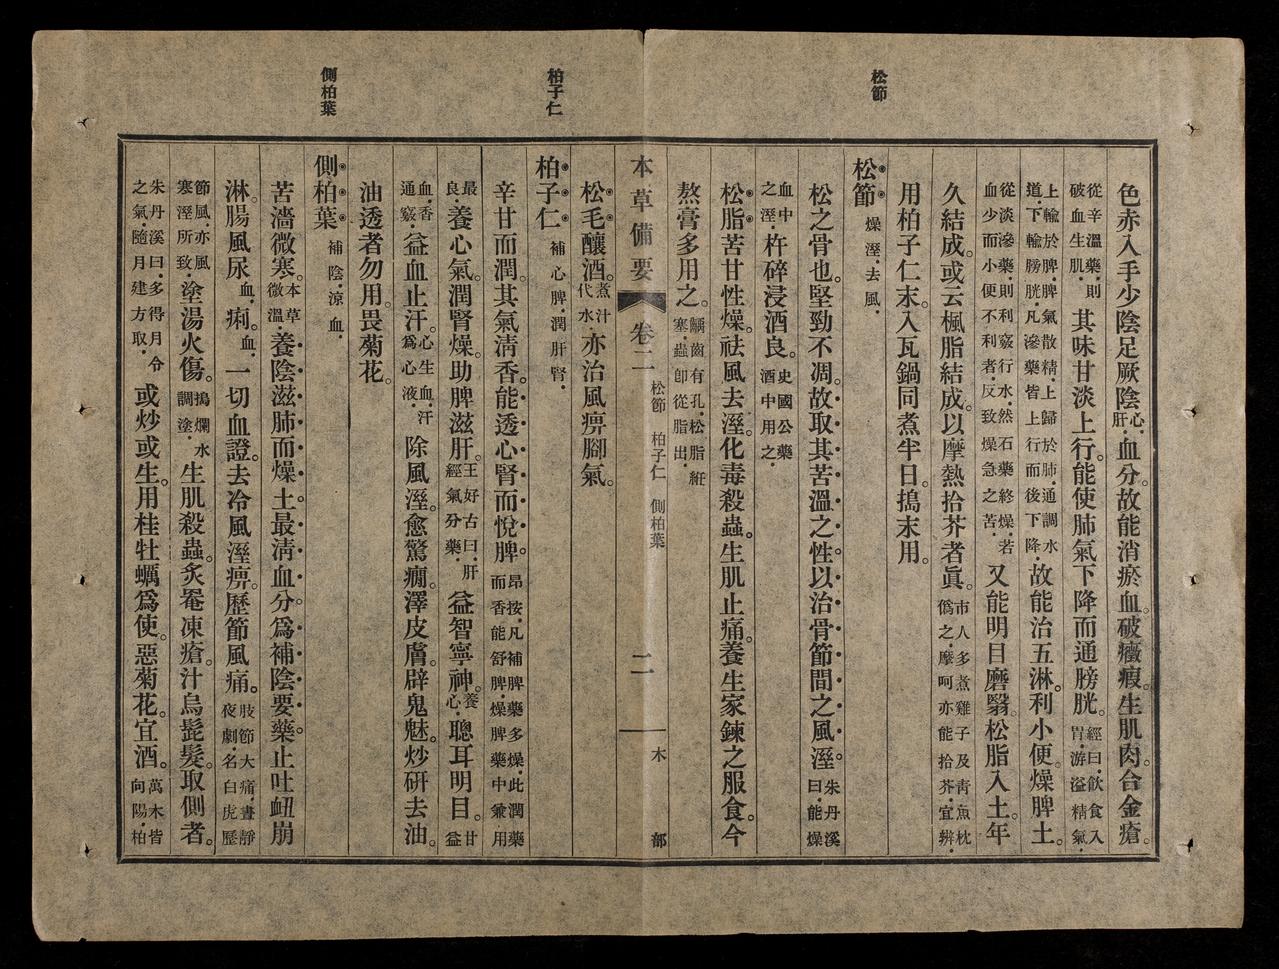 松節
柏子仁
側柏葉
色赤入手少陰足厥陰心肝血分。故能消瘀血。破癥瘕。生肌肉。合金瘡。
從辛溫藥。則破血生肌。其味甘淡上行。能使肺氣下降而通膀胱。經曰。飲食入胃。游溢精氣。
上輸於脾。脾氣散精。上歸於肺。通調水道。下輸膀胱。凡滲藥皆上行而後下降。故能治五淋。利小便。燥脾土。
從淡滲藥。則利竅行水。然石藥終燥。若血少而小便不利者。反致燥急之苦。又能明目磨翳。松脂入土。年
久結成。或云楓脂結成。以摩熱拾芥者眞。市人多煮雞子及靑魚枕僞之。摩呵亦能拾芥。宜辨。
用柏子仁末。入瓦鍋同煮半日。搗末用。
松節 燥溼。去風。
松之骨也。堅勁不凋。故取其苦溫之性。以治骨節間之風溼。朱丹溪曰。能燥
血中之溼。杵碎浸酒良。史國公藥酒中用之。
松脂苦甘性燥。祛風去溼。化毒殺蟲。生肌止痛。養生家鍊之服食。今
熬膏多用之。齲齒有孔。松脂紝塞。蟲卽從脂出。
本草備要 卷二 松節 柏子仁 側柏葉 二 木部
松毛釀酒。煮汁代水。亦治風痹腳氣。
柏子仁 補心脾。潤肝腎。
辛甘而潤。其氣淸香。能透心腎而悅脾。昂按。凡補脾藥多燥。此潤藥而香能舒脾。燥脾藥中兼用
最良。養心氣。潤腎燥。助脾滋肝。王好古曰。肝經氣分藥。益智寧神。養心。聰耳明目。甘益
血。香通竅。益血止汗。心生血。汗爲心液。除風溼。愈驚癇。澤皮膚。辟鬼魅。炒硏去油。
油透者勿用。畏菊花。
側柏葉 補陰。涼血。
苦濇微寒。本草微溫。養陰滋肺而燥土。最淸血分。爲補陰要藥。止吐衄崩
淋。腸風尿血。痢血。一切血證。去冷風溼痹。歷節風痛。肢節大痛。晝靜夜劇。名白虎歷
節風。亦風寒溼所致。塗湯火傷。搗爛水調塗。生肌殺蟲。炙罨凍瘡。汁烏髭髮。取側者。
朱丹溪曰。多得月令之氣。隨月建方取。或炒或生。用桂牡蠣爲使。惡菊花。宜酒。萬木皆向陽。柏